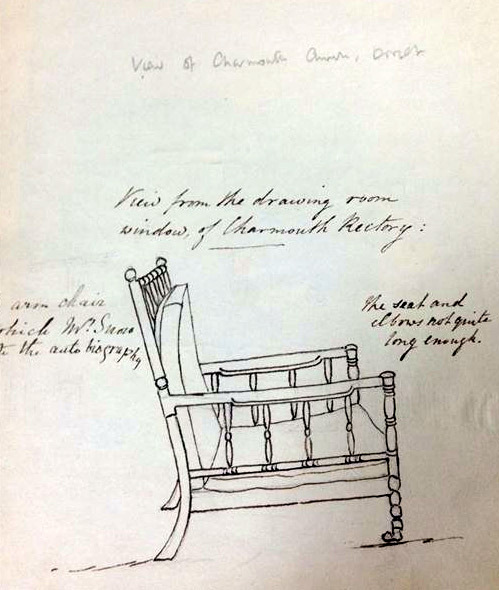 View of Charmouth Church, Dorset
View from the drawing room
window, of Charmouth Rectory:
arm chair
which Mr. Snow
the auto biography
The seat and
elbows not quite
long enough.